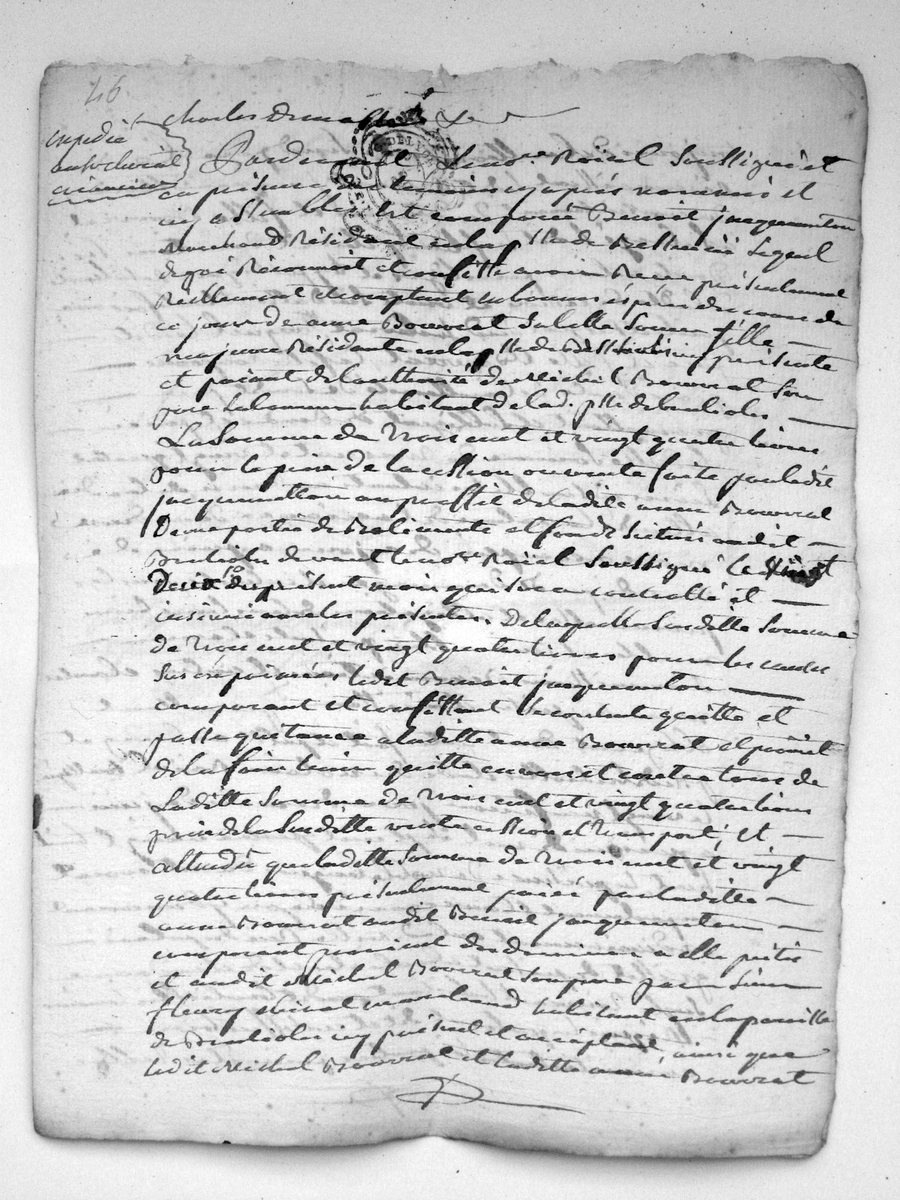 46
expedié
audt chirat
creancier
Pardevant le nore Roial Soussigné et
en presence temoins cy apres nommés et
cy assemblés est comparu Benoit jacquemetton
marchand Résidant en la psse de lequel
de gré Reconnoit et confesse avoir Receu presentement
Reellement et comptant en bonnes espèces du cours de
ce jour de anne Bouvrat fille
majeure Résidante en la psse de presente
et procedant de l'authorité de Michel Bouvrat Son
pere laboureur habitant de lad. psse de
La Somme de Trois cent et vingt quatre livres
pour le prix de la cession ou vente faite par ledit
jacquemetton au proffit de ladite anne Bouvrat
D'une partie de Batiments et fonds Situés audit
devant le nore Roial Soussigné le vingt
Deux du présent mois qui sera controllé et
insinué avec les présentes. De laquelle Susditte Somme
de Trois cent et vingt quatre livres pour les causes
Sus exprimées ledit Benoit jacquemetton
comparant et confessant Se contente quitte et
passe quittance a laditte anne Bouvrat et promet
de la faire tenir quitte envers et contre tous de
Laditte Somme de Trois cent et vingt quatre livres
prix de la Susditte vente cession et transport, et
attendu que laditte Somme de Trois cent et vingt
quatre livres presentement paiée par laditte
anne Bouvrat audit Benoit jacquemetton
comparant provient des deniers a elle pretés
et audit Michel Bouvrat Son pere par Sieur
fleury chirat marchand habitant en la paroisse
de icy présent et acceptant, ainsi que
ledit Michel Bouvrat et laditte anne Bouvrat